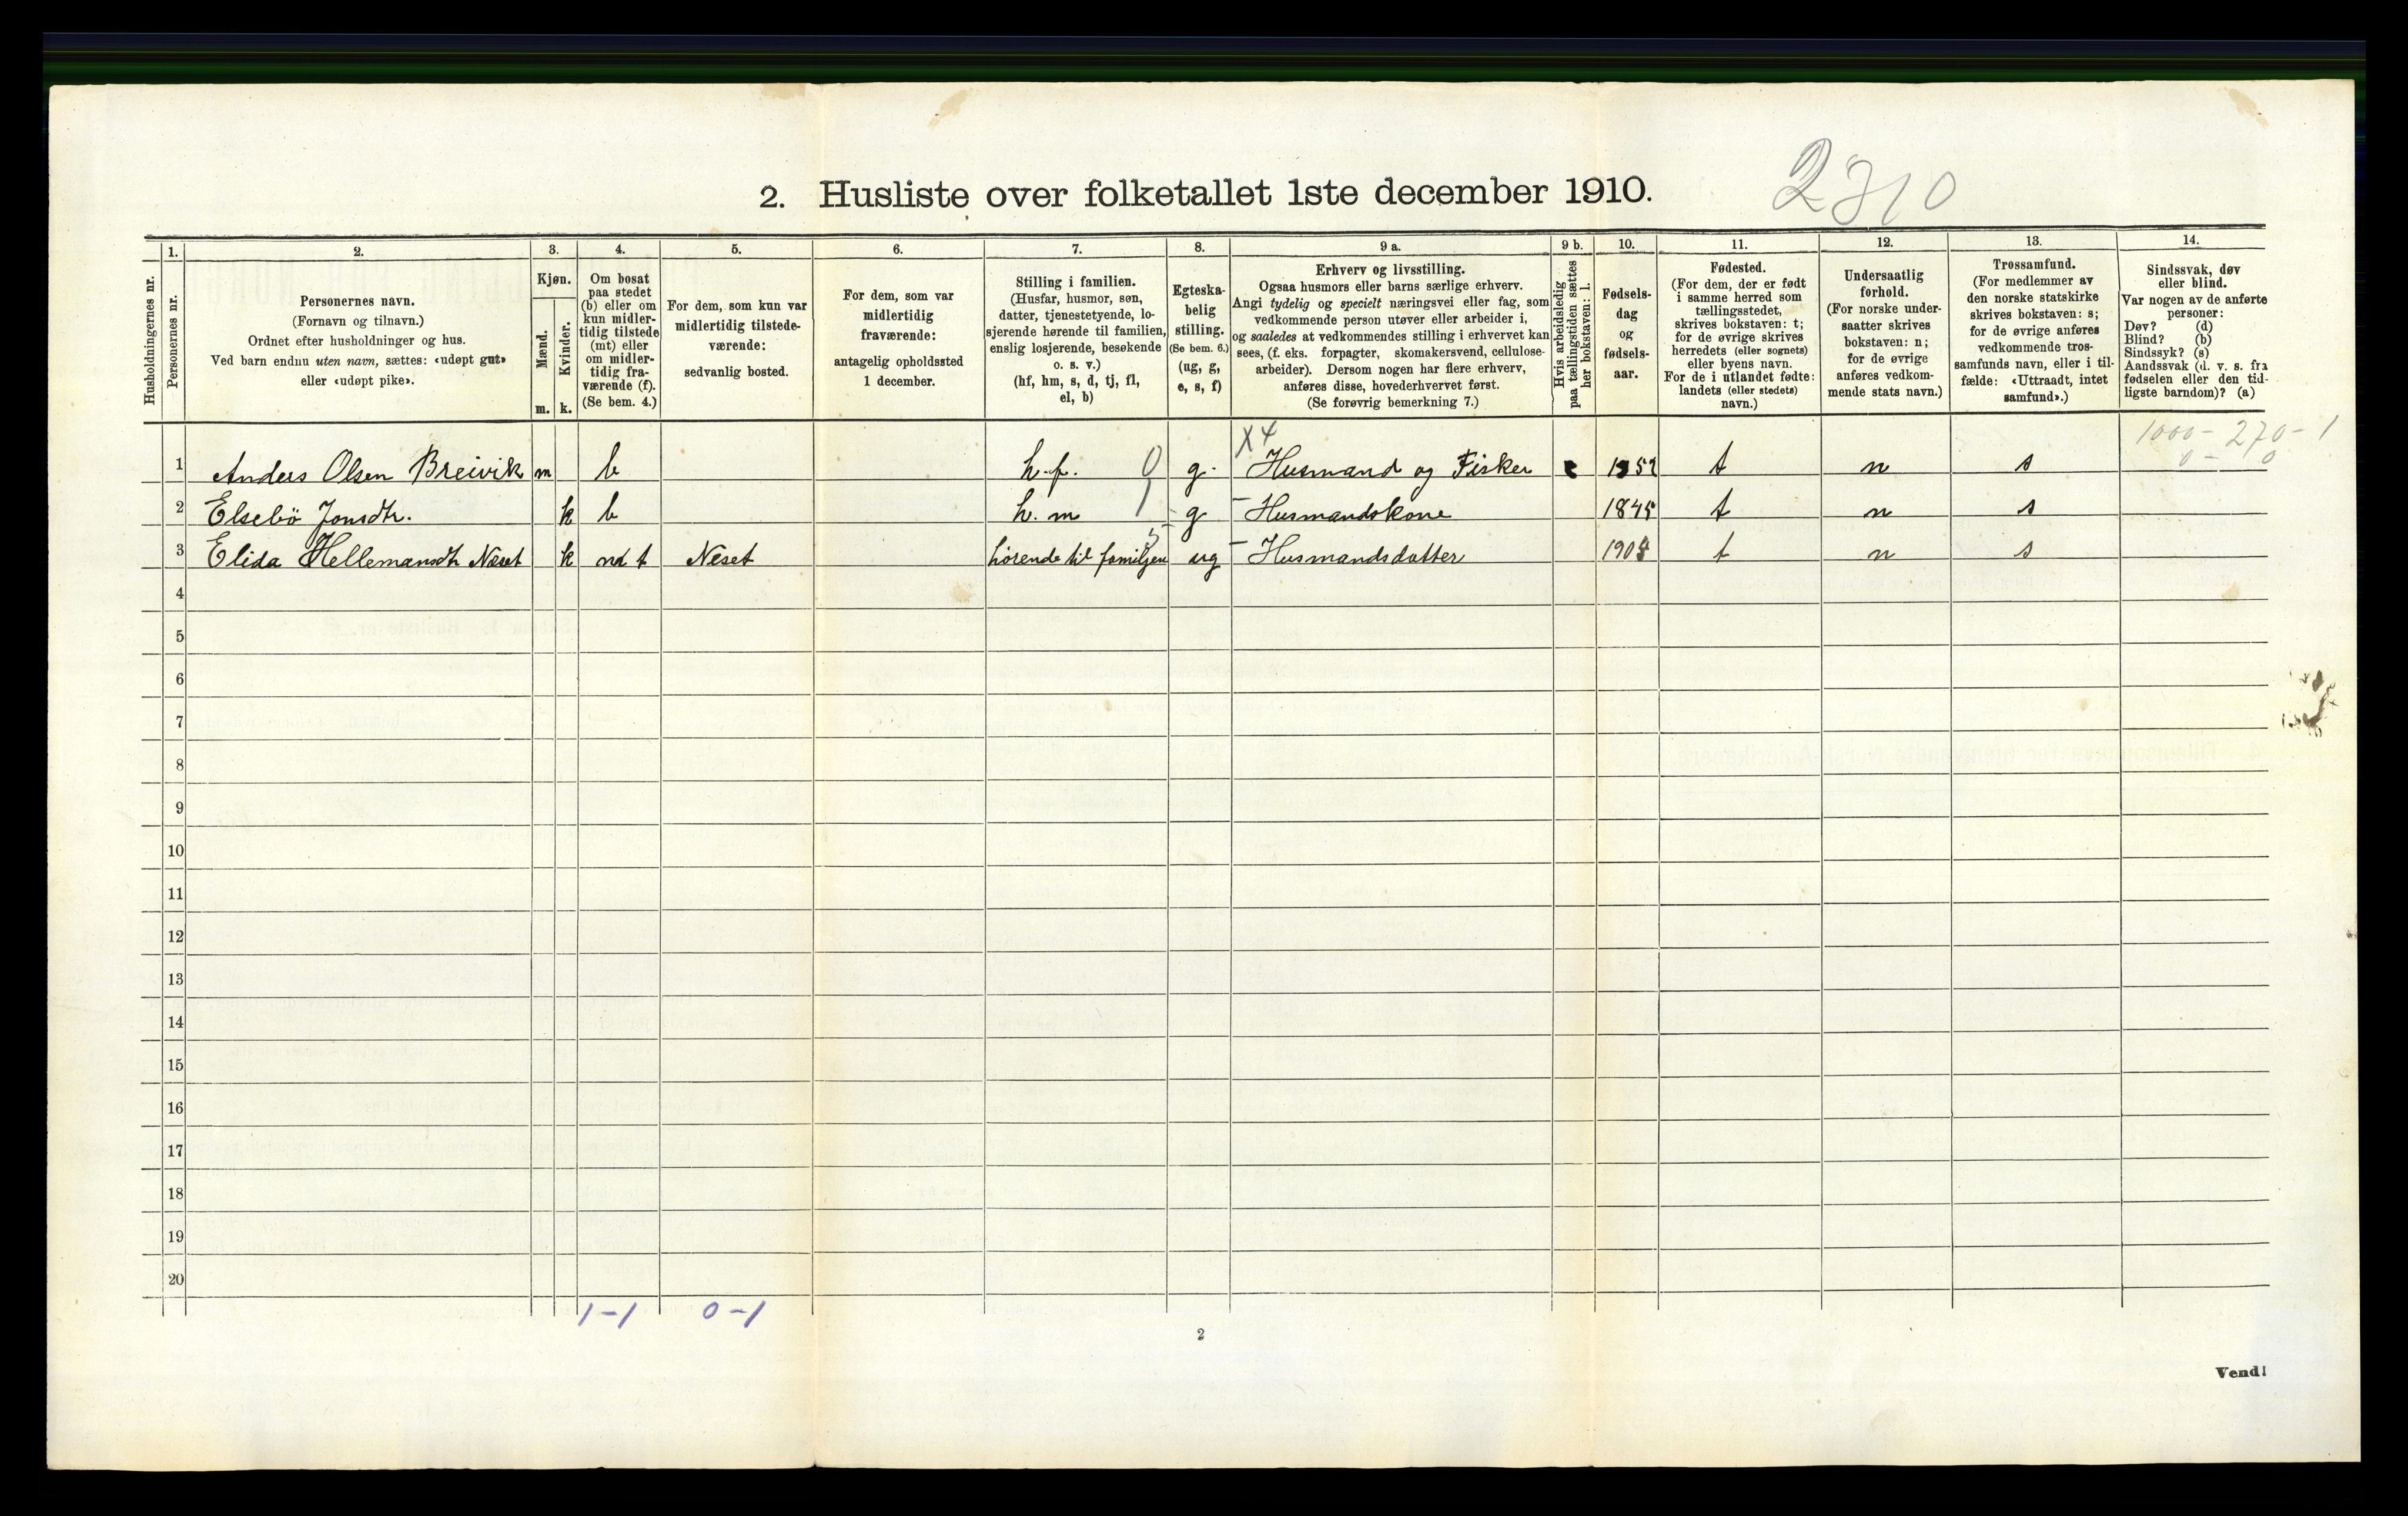 2. Husliste over folketallet 1ste december 1910.
2310
Husholdningernes nr.
1.
Personernes nr.
2.
Personernes navn.
(Fornavn og tilnavn.)
Ordnet efter husholdninger og hus.
Ved barn endnu uten navn, sættes: «udøpt gut»
eller «udøpt pike».
3.
Kjøn.
Mænd.
m.
Kvinder.
k.
4.
Om bosat
paa stedet
(b) eller om
kun midler-
tidig tilstede
(mt) eller
om midler-
tidig fra-
værende (f).
(Se bem. 4.)
5.
For dem, som kun var
midlertidig tilstede-
værende:
sedvanlig bosted.
6.
For dem, som var
midlertidig
fraværende:
antagelig opholdssted
1 december.
7.
Stilling i familien.
(Husfar, husmor, søn,
datter, tjenestetyende, lo-
sjerende hørende til familien,
enslig losjerende, besøkende
o. s. v.)
(hf, hm, s, d, tj, fl,
el, b)
8.
Egteska-
belig
stilling.
(Se bem. 6.)
(ug, g,
e, s, f)
9 a.
Erhverv og livsstilling.
Ogsaa husmors eller barns særlige erhverv.
Angi tydelig og specielt næringsvei eller fag, som
vedkommende person utøver eller arbeider i,
og saaledes at vedkommendes stilling i erhvervet kan
sees, (f. eks. forpagter, skomakersvend, cellulose-
arbeider). Dersom nogen har flere erhverv,
anføres disse, hovederhvervet først.
(Se forøvrig bemerkning 7.)
9 b.
Hvis arbeidsledig
paa tællingstiden sættes
her bokstaven: l.
10.
Fødsels-
dag
og
fødsels-
aar.
11.
Fødested.
(For dem, der er født
i samme herred som
tællingsstedet,
skrives bokstaven: t;
for de øvrige skrives
herredets (eller sognets)
eller byens navn.
For de i utlandet fødte:
landets (eller stedets)
navn.)
12.
Undersaatlig
forhold.
(For norske under-
saatter skrives
bokstaven: n;
for de øvrige
anføres vedkom-
mende stats navn.)
13.
Trossamfund.
(For medlemmer av
den norske statskirke
skrives bokstaven: s;
for de øvrige anføres
vedkommende tros-
samfunds navn, eller i til-
fælde: «Uttraadt, intet
samfund».)
14.
Sindssvak, døv
eller blind.
Var nogen av de anførte
personer:
Døv? (d)
Blind? (b)
Sindssyk? (s)
Aandssvak (d. v. s. fra
fødselen eller den tid-
ligste barndom)? (a)
X4
1000 - 270 - 1
0 - 0
1 Anders Olsen Breivik m b h.f. 0 g. Husmand og Fisker 1852 t n s
2 Elsebö Jonsdtr. k b h.m 1 g - Husmandskone 1845 t n s
3 Elida Hellemansdtr Neset k mt Neset hörende til familjen 5 ug - Husmandsdatter t n s
4
5
6
7
8
9
10
11
12
13
14
15
16
17
18
19
20
1-1 0-1
2
Vend!